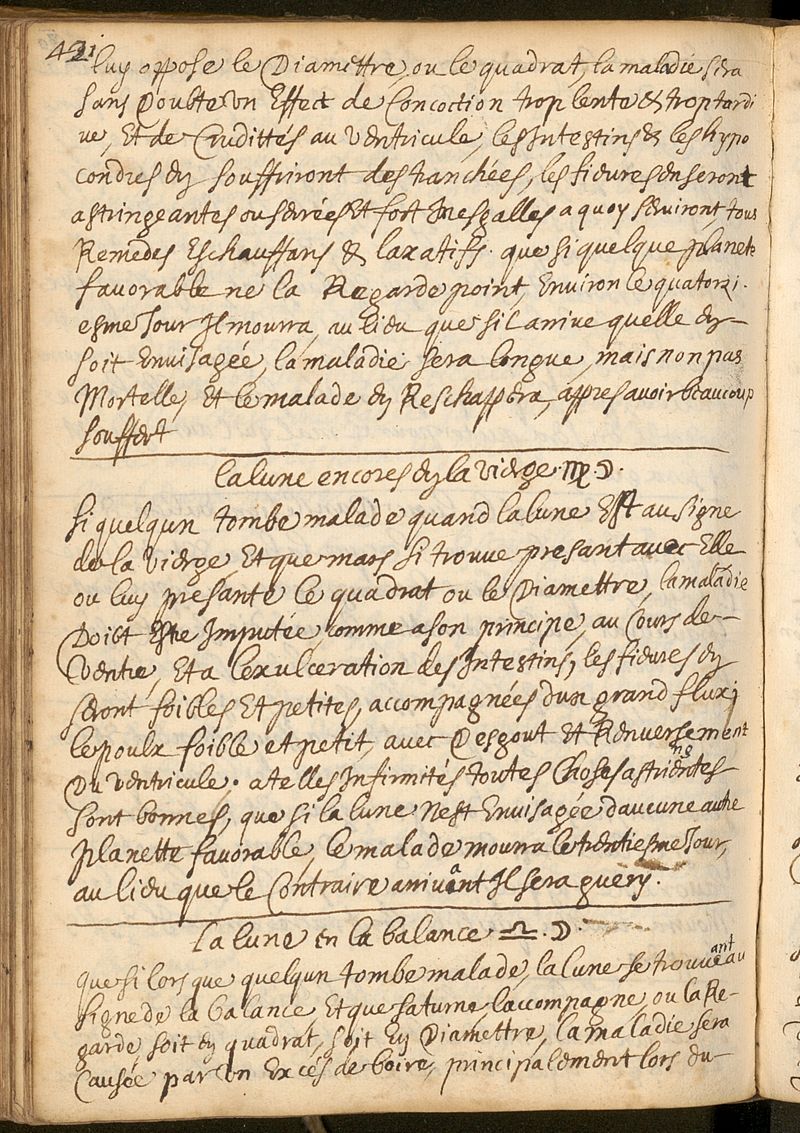 421
luy oppose le Diamettre, ou le quadrat, la maladie sera
sans Doubte un Effect de Concoction trop lente & trop tardi
ve, Et de Crudittés au Ventricule, les Intestins & les hypo
condres en souffriront des tranchées, les fievres en seront
astringeantes ou serrées Et fort Inesgalles a quoy serviront tous
Remedes Eschauffans & laxatifs. que si quelque planete
favorable ne la Regarde point, Environ le quatorzi-
esme Jour Il mourra, au lieu que s'il arrive quelle en
soit Envisagée, la maladie sera longue, mais non pas
Mortelle, Et le malade en Reschappera, appres avoir beaucoup
souffert
la lune encores en la vierge. ♍ ☽.
si quelqun tombe malade quand la lune Est au signe
de la vierge, Et que mars si trouve presant avec Elle
ou luy presante le quadrat ou le Diamettre, la maladie
Doibt Estre Imputée, comme a son principe, au Cours de
Ventre, Et a lexulceration des Intestins, les fievres en
seront foibles Et petites, accompagnées dun grand flux;
le poulx foible et petit, avec Desgout Et Renversement
Du Ventricule. a telles Infirmités toutes Choses astringentes
sont bonnes, que si la lune Nest Envisagée daucune autre
planette favorable, le malade mourra le trentiesme Jour,
au lieu que le Contraire arrivant Il sera guery.
La lune en la balance ♎. ☽.
que si lors que quelqun tombe malade, la lune se trouvant au
signe de la balance Et que saturne laccompagne, ou la Re-
garde, soit en quadrat, soit en Diamettre, la maladie sera
Causée par un Excés de boire, principalement lors du